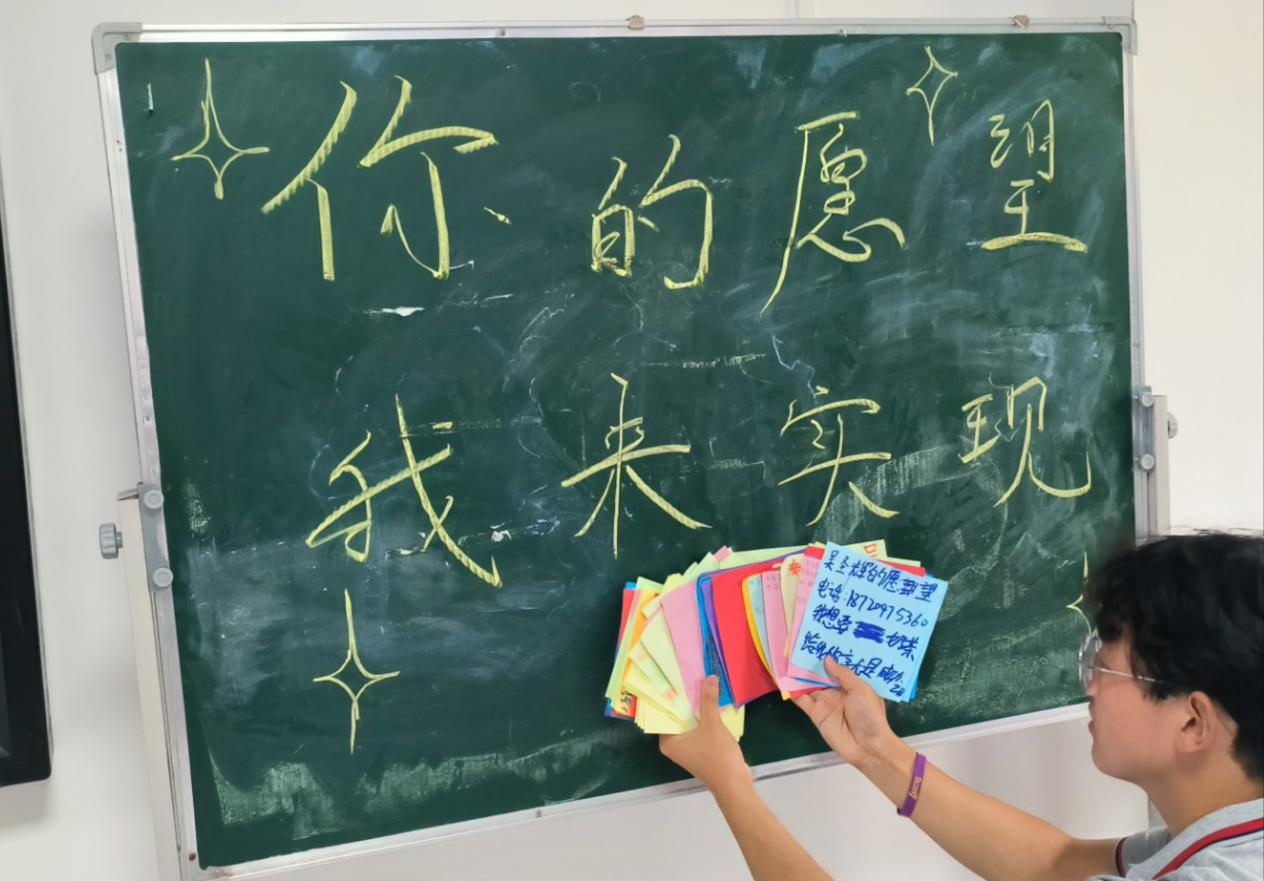 你的愿望
我来实现
吴圣辉的愿望
电话:18720975360
我想要 奶茶